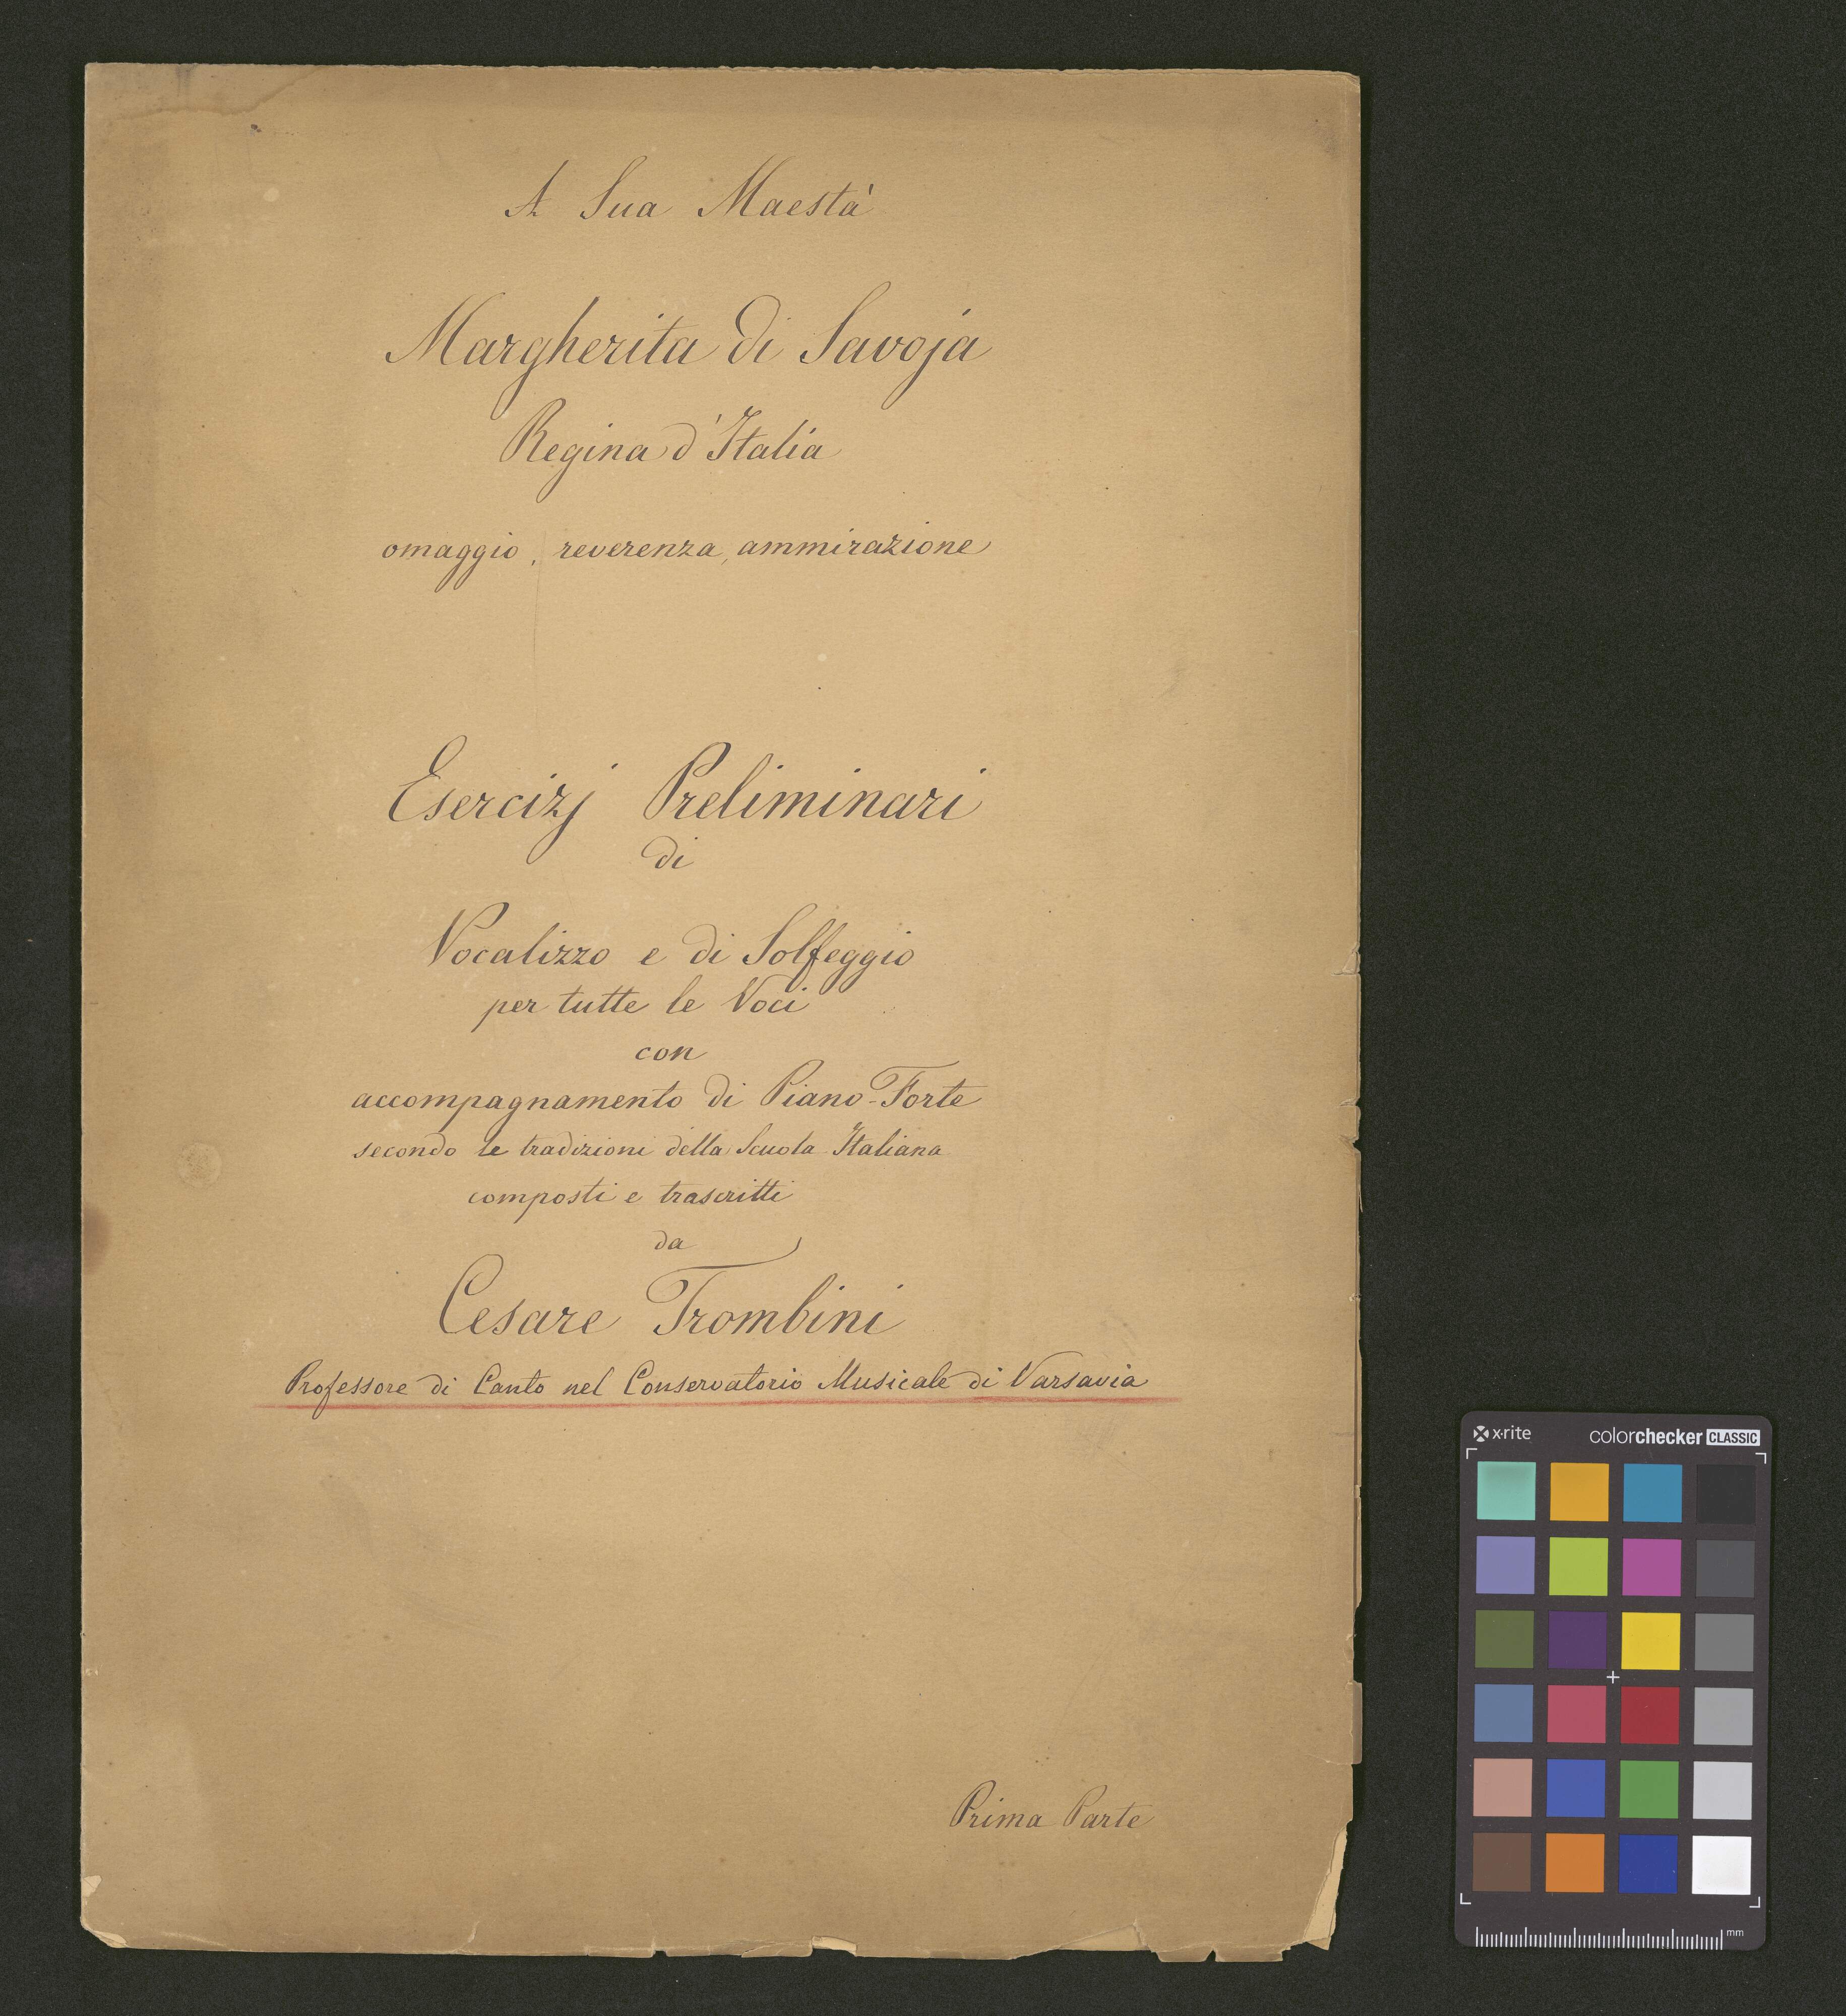 A Sua Maestà
Margherita di Savoja
Regina d'Italia
omaggio, reverenza, ammirazione
Esercizj Preliminari
di
Vocalizzo e di Solfeggio
per tutte le Voci
con
accompagnamento di Piano-Forte
secondo le tradizioni della Scuola Italiana
composti e trascritti
da
Cesare Trombini
Professore di Canto nel Conservatorio Musicale di Varsavia
Prima Parte
x-rite
colorchecker CLASSIC
mm